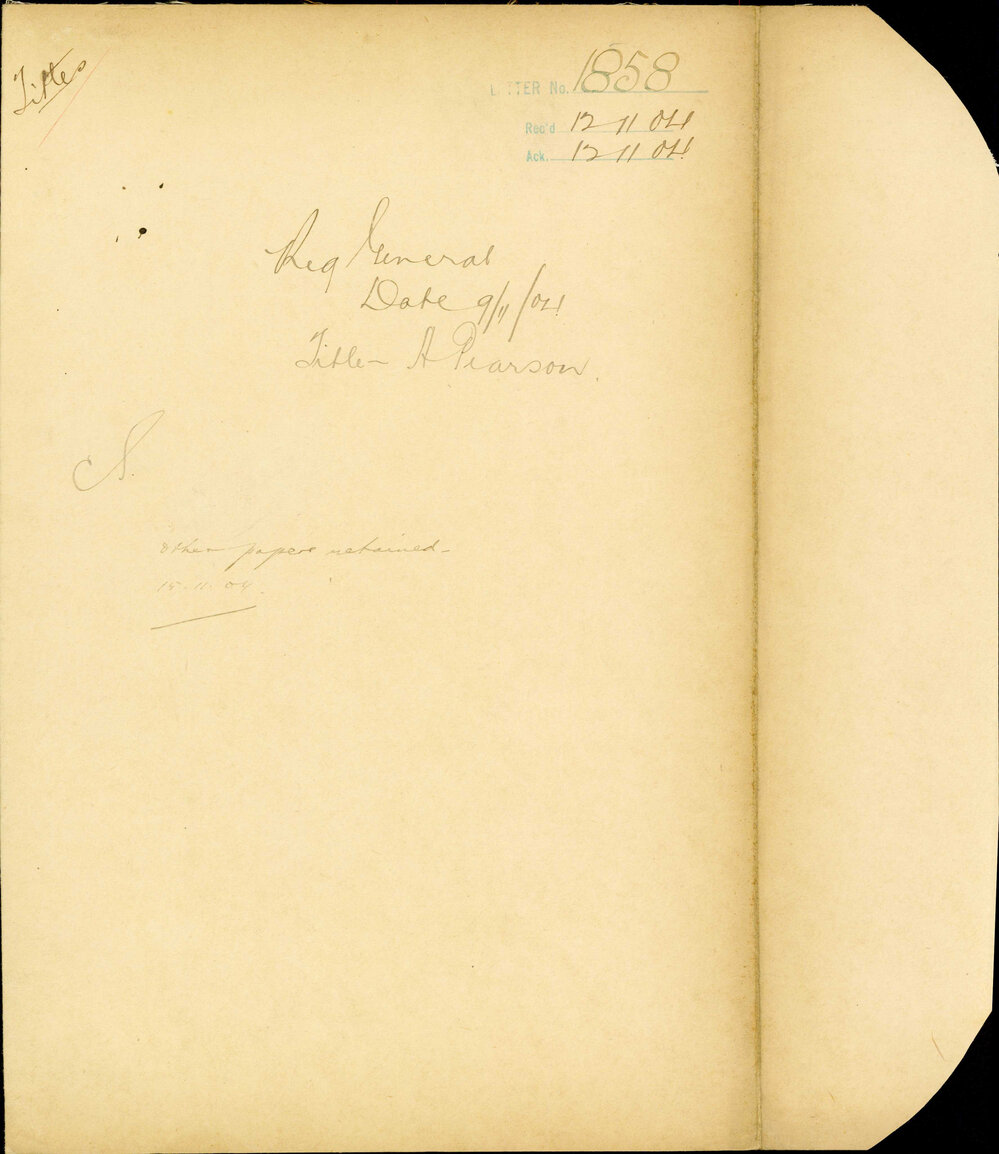 Titles
LETTER No. 1858
Rec'd 12 11 04
Ack. 12 11 04
Reg General
Date 9/11/04
Title - A Pearson.
other papers retained -
15.11.04.